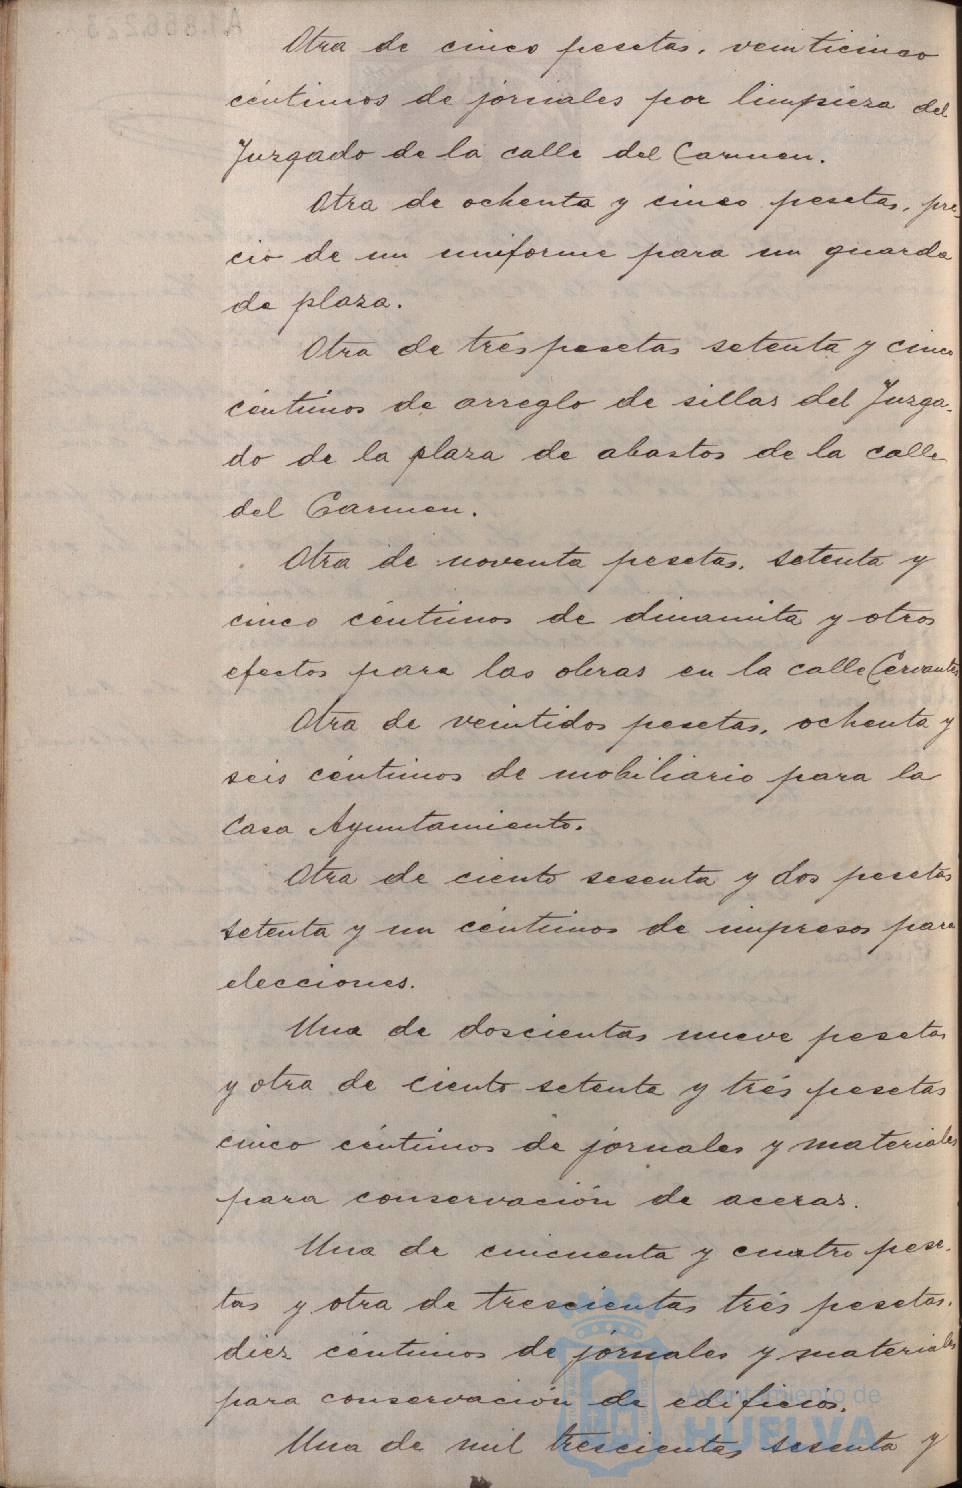 Otra de cinco pesetas, veinticinco
céntimos de jornales por limpieza del
Juzgado de la calle del Carmen.
Otra de ochenta y cinco pesetas, pre-
cio de un uniforme para un guarda
de plaza.
Otra de trés pesetas setenta y cinco
céntimos de arreglo de sillas del Juzga-
do de la plaza de abastos de la calle
del Carmen.
Otra de noventa pesetas, setenta y
cinco céntimos de dinamita y otros
efectos para las obras en la calle Cervantes
Otra de veintidos pesetas, ochenta y
seis céntimos de mobiliario para la
Casa Ayuntamiento.
Otra de ciento sesenta y dos pesetas
setenta y un céntimos de impresos para
elecciones.
Una de doscientas nueve pesetas
y otra de ciento setenta y trés pesetas
cinco céntimos de jornales y materiales
para conservación de aceras.
Una de cincuenta y cuatro pese-
tas y otra de trescientas trés pesetas,
diez céntimos de jornales y materiales
para conservación de edificios.
Una de mil trescientas sesenta y
Ayuntamiento de
HUELVA